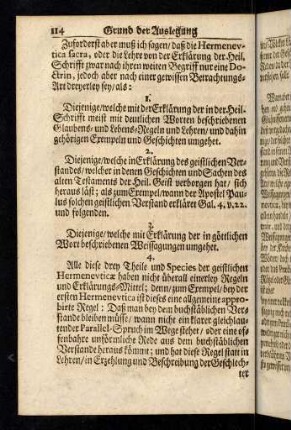 114 Grund der Auslegung
Zuforderst aber muß ich sagen/ daß die Hermenev-
tica sacra, oder die Lehre von der Erklärung der Heil.
Schrifft zwar nach ihren weiten Begriff nur eine Do-
ctrin, jedoch aber nach einer gewissen Betrachtungs-
Art dreyerley sey/ als:
1.
Diejenige/ welche mit der Erklärung der in der Heil.
Schrifft meist mit deutlichen Worten beschriebenen
Glaubens- und Lebens-Regeln und Lehren/ und dahin
gehörigen Exempeln und Geschichten umgehet.
2.
Diejenige/ welche in Erklärung des geistlichen Ver-
standes/ welcher in denen Geschichten und Sachen des
alten Testaments der Heil. Geist verborgen hat/ sich
heraus läst; als zum Exempel/ wann der Apostel Pau-
lus solchen geistlichen Verstand erkläret Gal. 4. v. 22.
und folgenden.
3.
Diejenige/ welche mit Erklärung der in göttlichen
Wort beschriebenen Weissagungen umgehet.
4.
Alle diese drey Theile und Species der geistlichen
Hermenevticæ haben nicht überall einerley Regeln
und Erklärungs-Mittel; denn/ zum Exempel/ bey der
ersten Hermenevtica ist dieses eine allgemeine appro-
birte Regel: Daß man bey dem buchstäblichen Ver-
stande bleiben müsse/ wann nicht ein klarer gleichlau-
tender Parallel-Spruch im Wege stehet/ oder eine of-
fenbahre unförmliche Rede aus dem buchstäblichen
Verstande heraus kömmt; und hat diese Regel statt in
Lehren/ in Erzehlung und Beschreibung der Geschlech-
ter